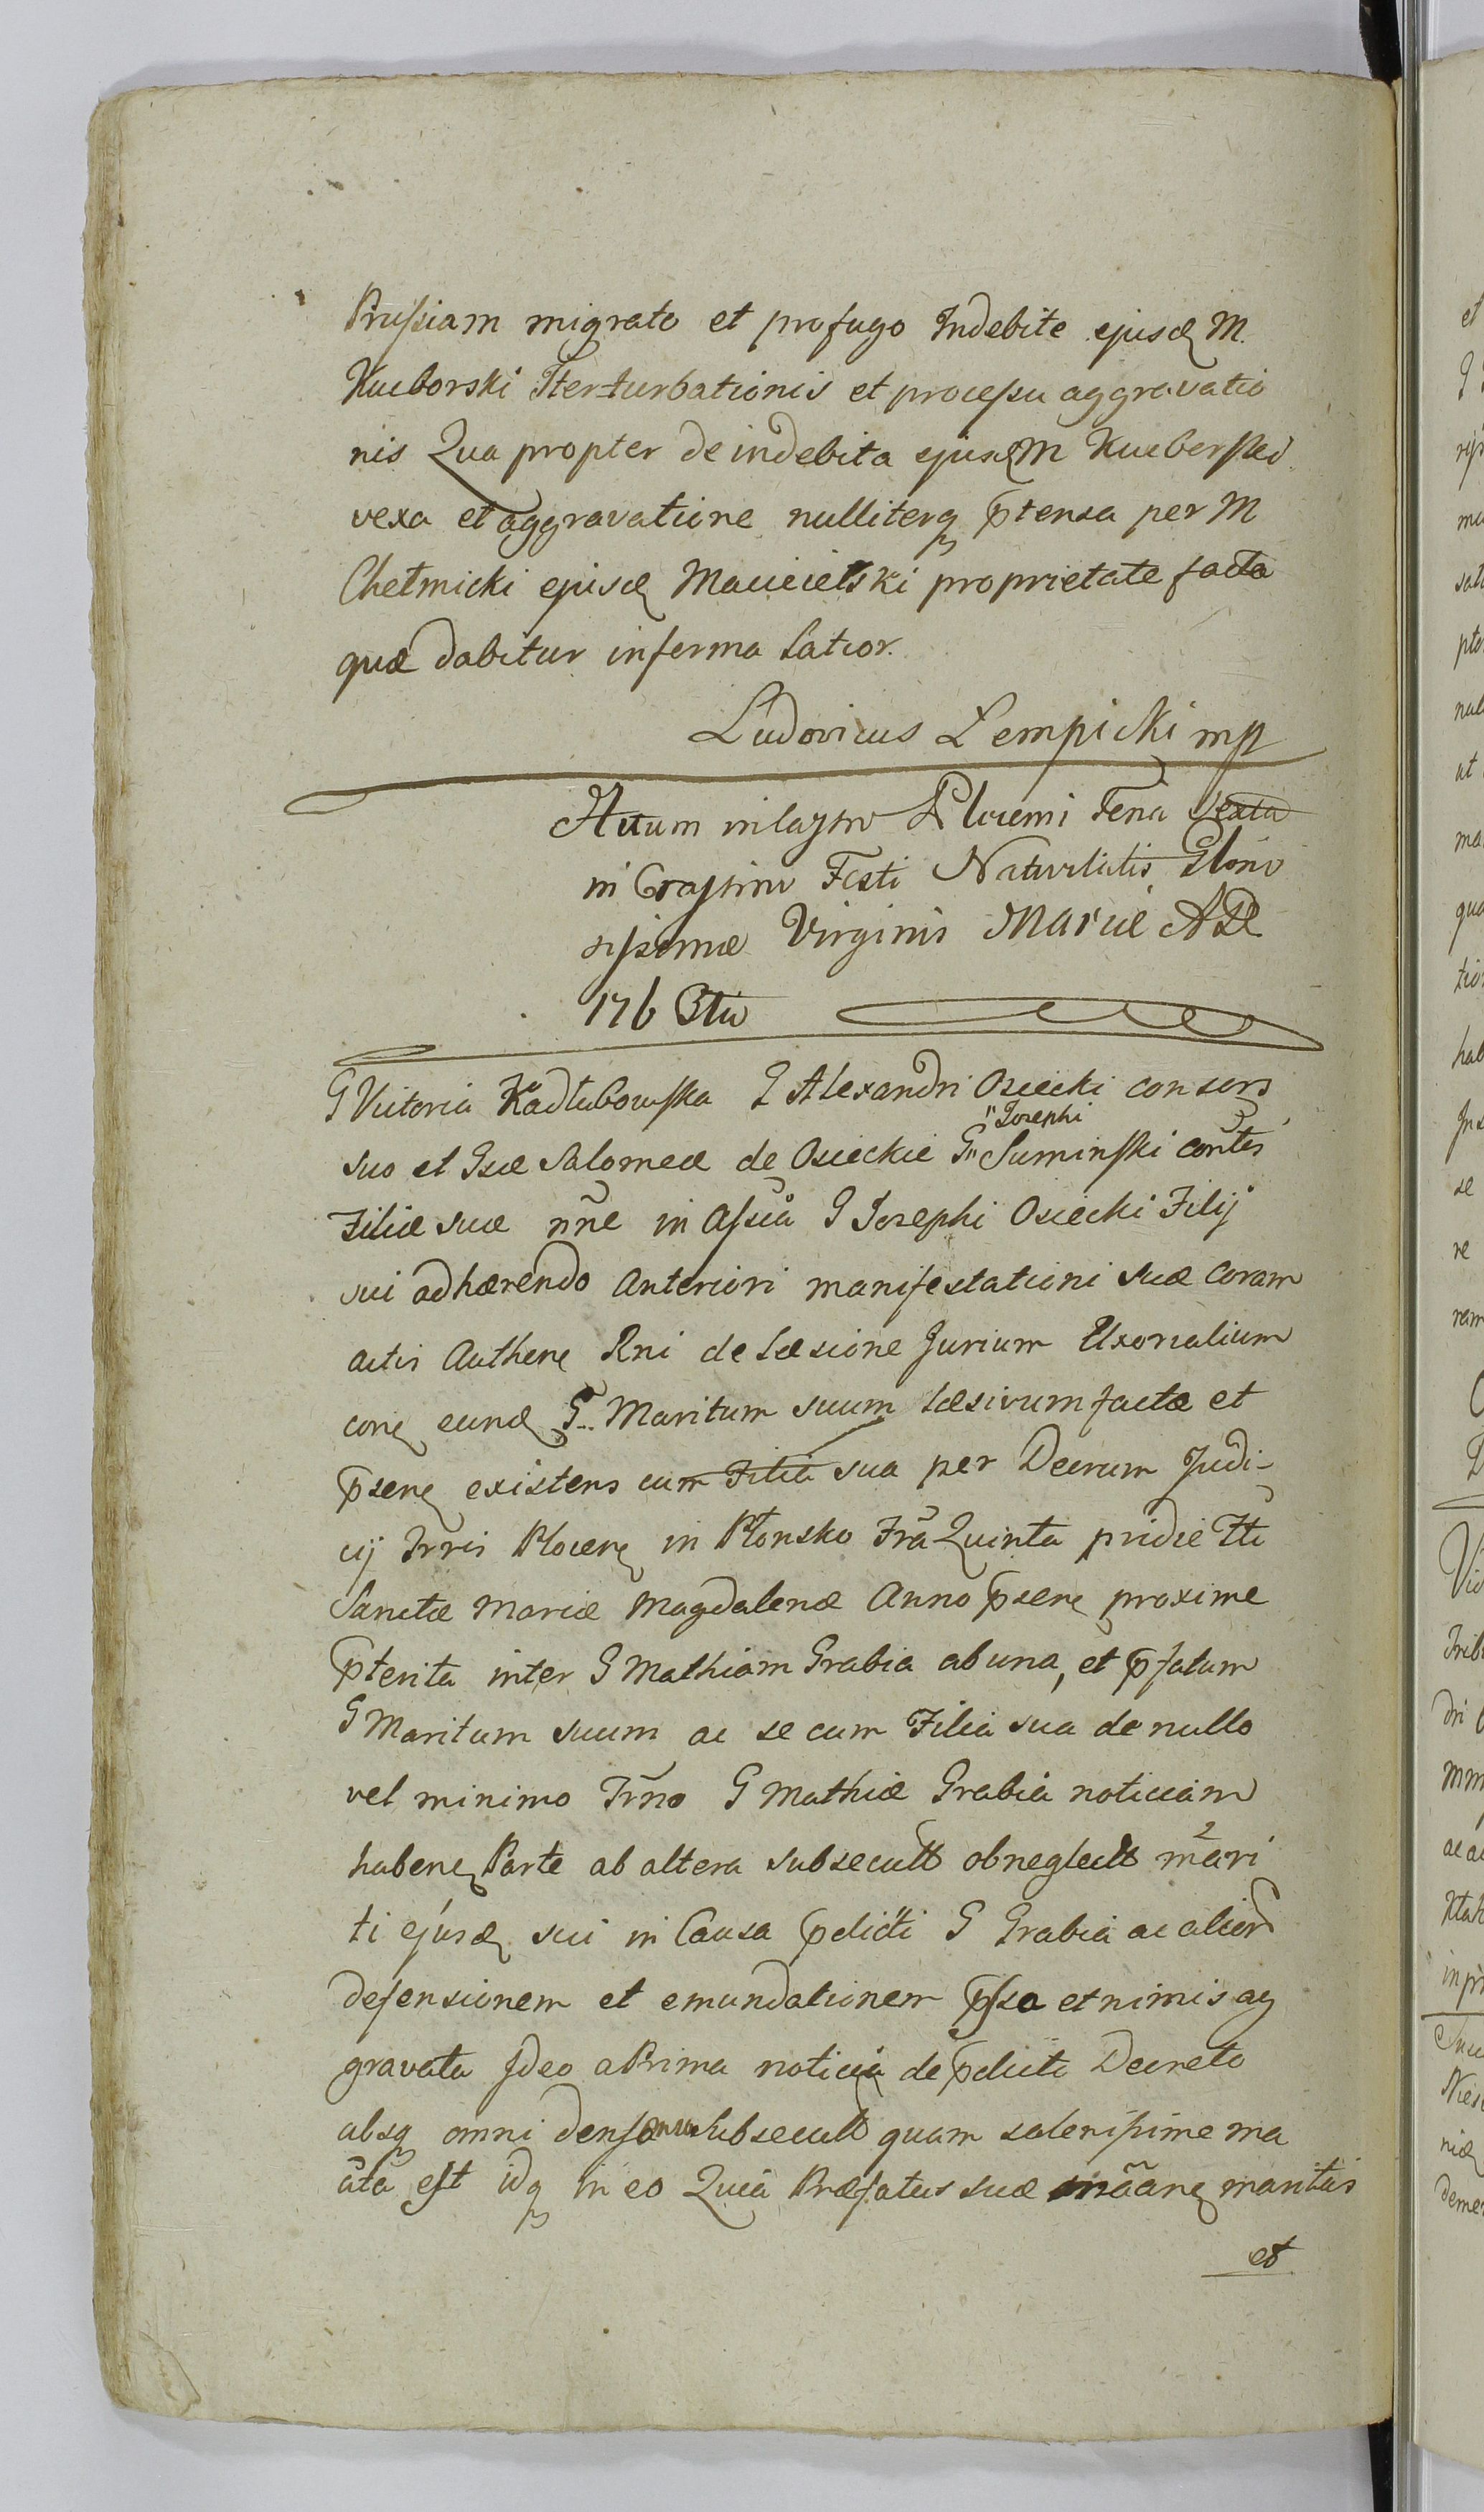 Prussiam migrato et profugo Indebite ejusd M.
Kueborski Iterturbationis et processu aggravatio
nis Qua propter de indebita ejusd M Kueberski
vexa et aggravatione nulliterq ptensa per M
Chełmicki ejusd Macieielski proprietate facta
quæ dabitur inferma Latior.
Ludovicus Lempicki mp
Actum in Castro Plocensi Feria Sexta
in Crastino Festi Nativitatis Glorio
sissimæ Virginis Mariæ AD
1763tio
G Victoria Kadłubowska G Alexandri Osiecki consors
"Josephi
suo et Gsæ Salomeæ de Osieckie G" Suminski contis
Filiæ suæ nne in Assia G Josephi Osiecki Filij
sui adhærendo Anteriori manifestationi suæ Coram
actis Authen Rni de Læsione Jurium Uxorialium
con eund G Maritum suum Læsivum factæ et
psen existens cum Filia sua per Decrum Judi-
cij Trris Plocen in Płonsko Fra Quinta pridie Fti
Sanctæ Mariæ Magdalenæ Anno psen proxime
pterita inter G Mathiam Grabia ab una, et pfatum
G Maritum suum ac se cum Filia sua de nullo
vel minimo Trno G Mathiæ Grabia noticiam
haben Parte ab altera subsecutt obneglectt mari
ti ejusd sui in Causa pdicti G Grabia ac alior
defensionem et emundationem psa et nimis ag
gravata Ideo a Prima noticia de pdicti Decreto
absq omni subsecutt quam solenissime ma
ata est idq in eo Quia Præfatus suæ maan maritus
et